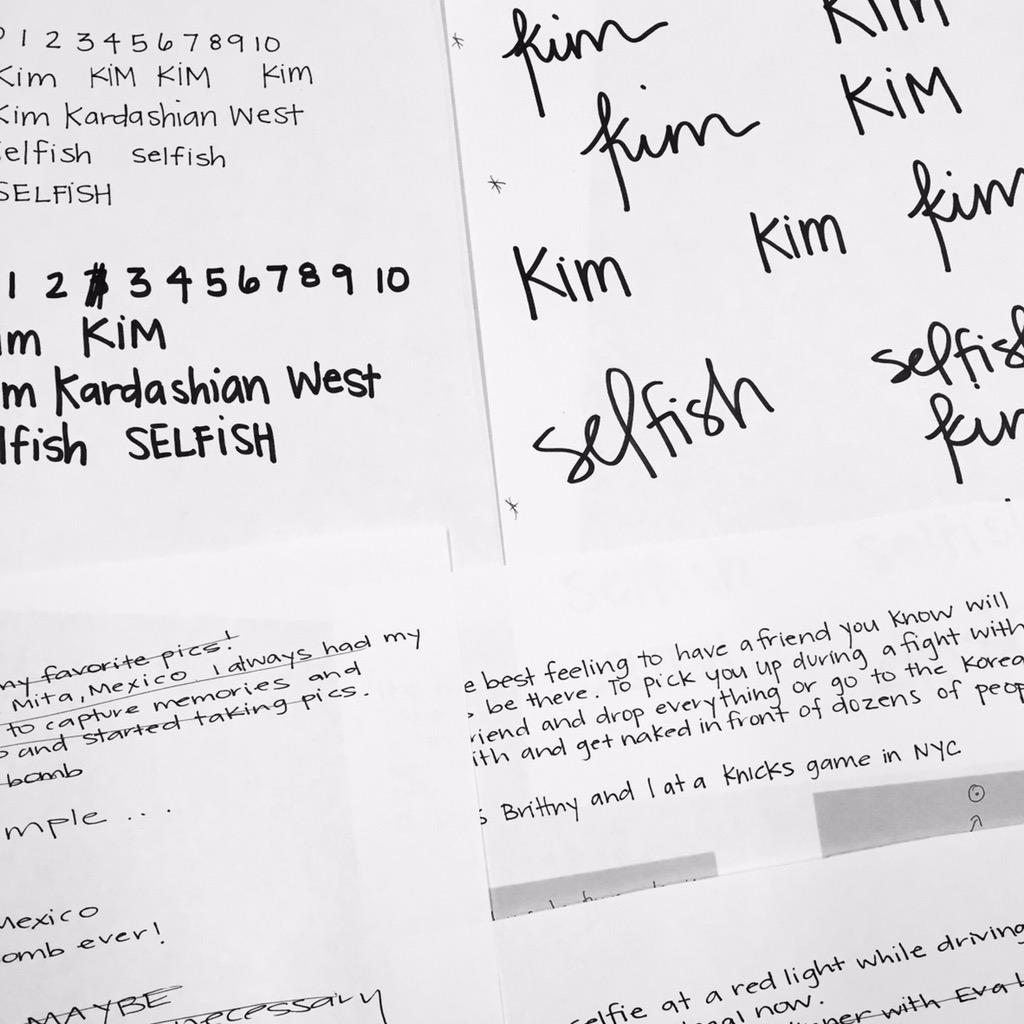 1 2 3 4 5 6 7 8 9 10
Kim KiM KiM Kim
Kim Kardashian West
selfish selfish
SELFiSH
1 2 3 4 5 6 7 8 9 10
im KiM
m Kardashian West
lfish SELFiSH
kim KiM
kim KiM
Kim Kim kim
selfish selfis
my favorite pics!
Mita, Mexico. I always had my
to capture memories and
and started taking pics.
bomb
mple ...
Mexico
omb ever!
MAYBE
necessary
e best feeling to have a friend you know will
be there. To pick you up during a fight with
riend and drop everything or go to the Korea
ith and get naked in front of dozens of peop
s Brittny and I at a Knicks game in NYC
selfie at a red light while driving
now.
with Eva